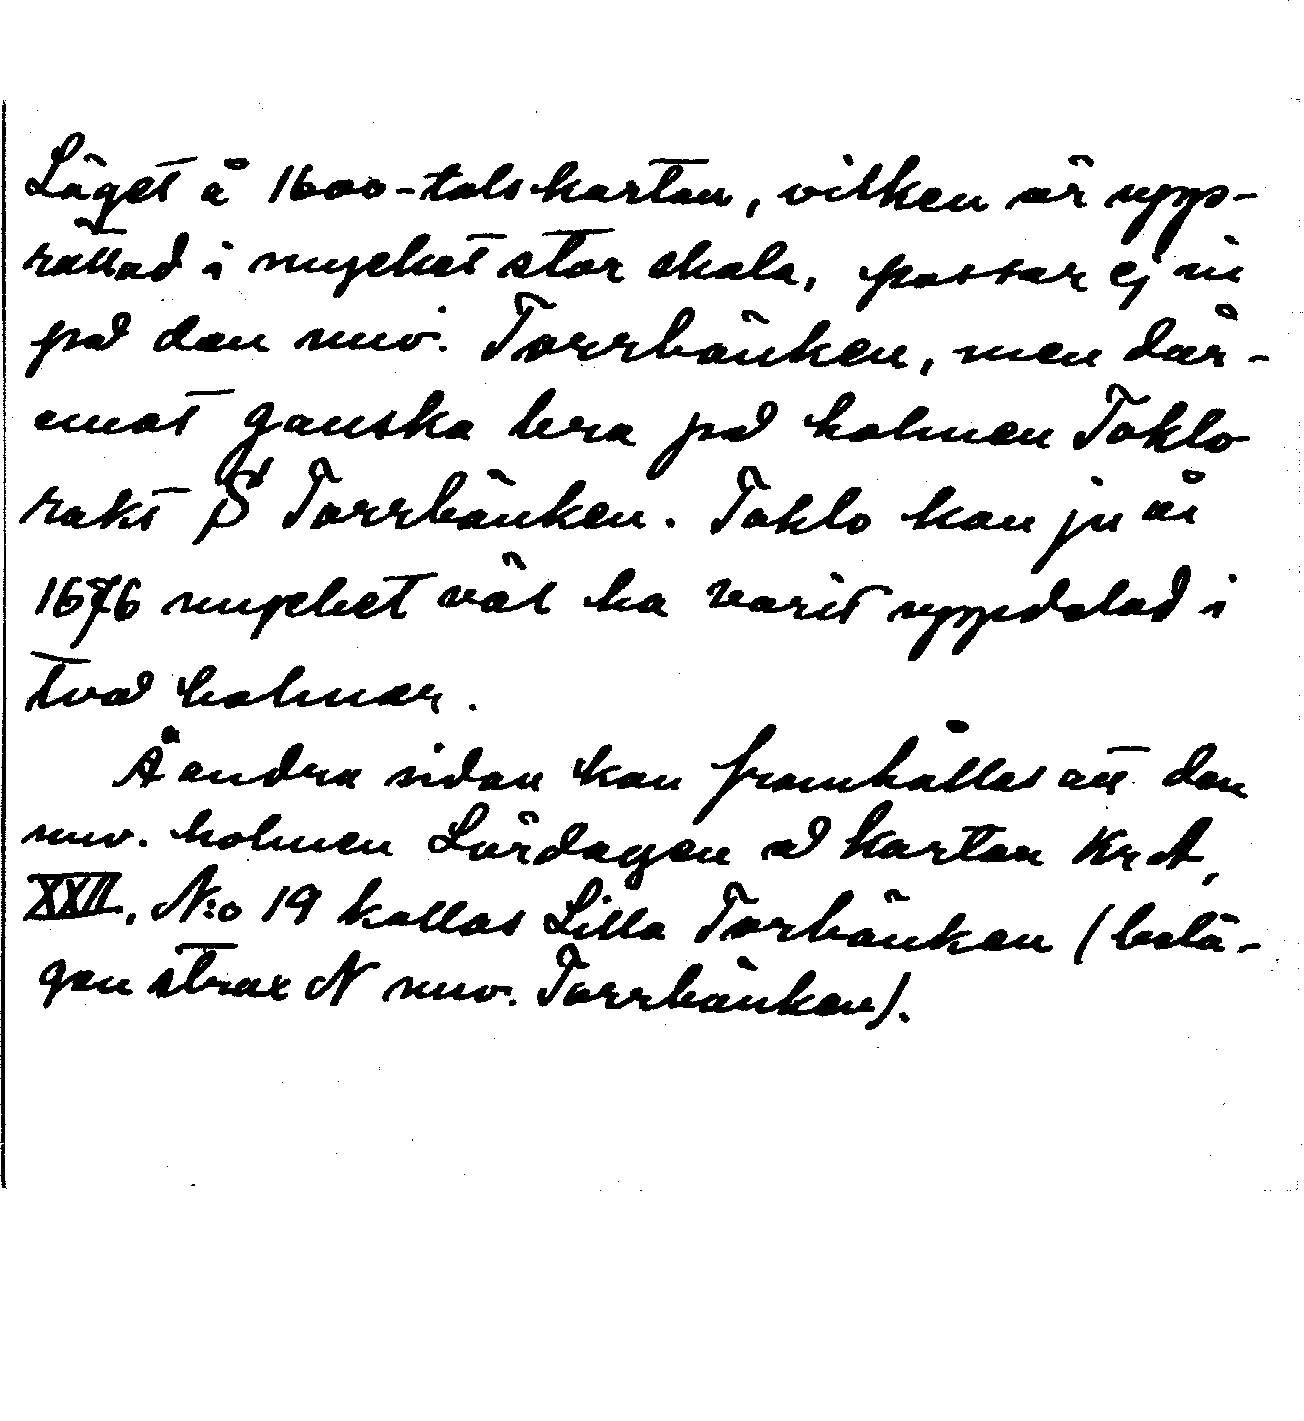 Läget å 1600-talskartan, vilken är upp-
rättad i mycket stor skala, passar ej in
på den nuv. Torrbänken, men där-
emot ganska bra på holmen Toklo
rakt S Torrbänken. Toklo kan ju år
1676 mycket väl ha varit uppdelad i
två holmar.
Å andra sidan kan framhållas att den
nuv. holmen Lördagen å kartan Kr A,
XXII, N:o 19 kallas Lilla Torbänken (belä-
gen strax N nuv. Torrbänken).